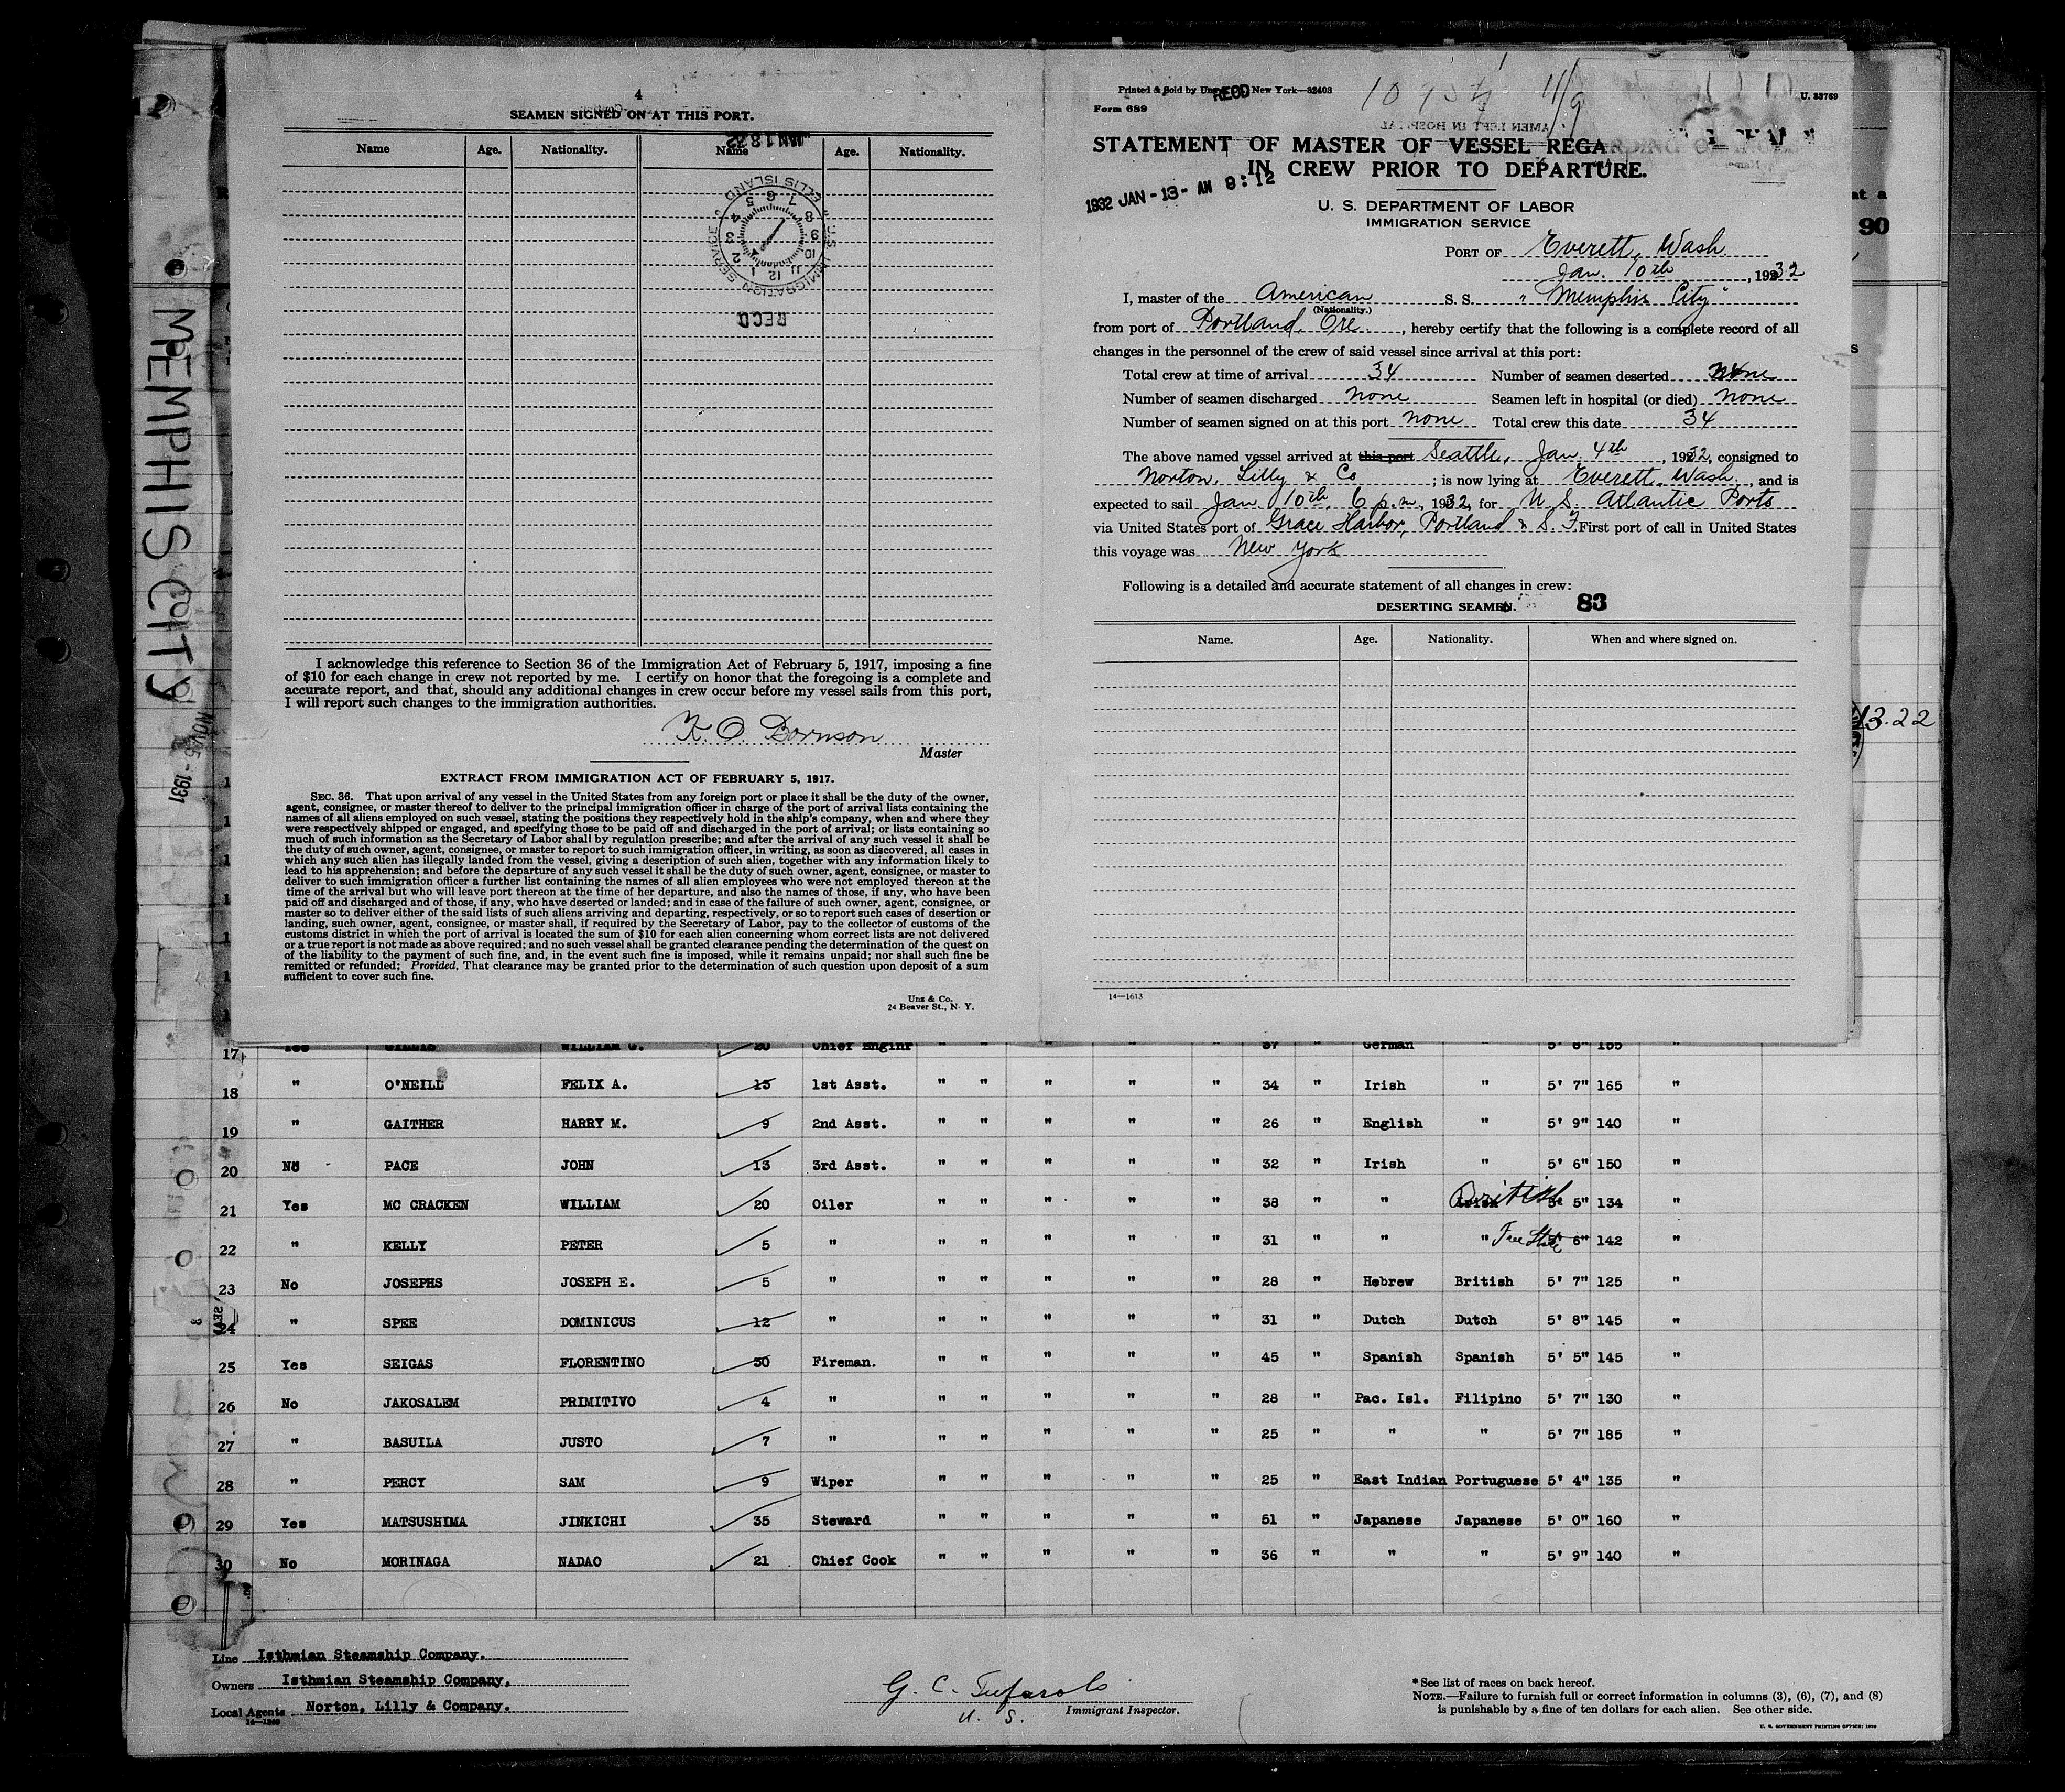 4
SEAMEN SIGNED ON AT THIS PORT.
Name Age. Nationality. Name Age. Nationality.
JAN 18 32
ELLIS ISLAND
U. S. IMMIGRATION SERVICE
RECD
I acknowledge this reference to Section 36 of the Immigration Act of February 5, 1917, imposing a fine
of $10 for each change in crew not reported by me. I certify on honor that the foregoing is a complete and
accurate report, and that, should any additional changes in crew occur before my vessel sails from this port,
I will report such changes to the immigration authorities.
K. O. Bornson
Master
EXTRACT FROM IMMIGRATION ACT OF FEBRUARY 5, 1917.
SEC. 36. That upon arrival of any vessel in the United States from any foreign port or place it shall be the duty of the owner,
agent, consignee, or master thereof to deliver to the principal immigration officer in charge of the port of arrival lists containing the
names of all aliens employed on such vessel, stating the positions they respectively hold in the ship's company, when and where they
were respectively shipped or engaged, and specifying those to be paid off and discharged in the port of arrival; or lists containing so
much of such information as the Secretary of Labor shall by regulation prescribe; and after the arrival of any such vessel it shall be
the duty of such owner, agent, consignee, or master to report to such immigration officer, in writing, as soon as discovered, all cases in
which any such alien has illegally landed from the vessel, giving a description of such alien, together with any information likely to
lead to his apprehension; and before the departure of any such vessel it shall be the duty of such owner, agent, consignee, or master to
deliver to such immigration officer a further list containing the names of all alien employees who were not employed thereon at the
time of the arrival but who will leave port thereon at the time of her departure, and also the names of those, if any, who have been
paid off and discharged and of those, if any, who have deserted or landed; and in case of the failure of such owner, agent, consignee, or
master so to deliver either of the said lists of such aliens arriving and departing, respectively, or so to report such cases of desertion or
landing, such owner, agent, consignee, or master shall, if required by the Secretary of Labor, pay to the collector of customs of the
customs district in which the port of arrival is located the sum of $10 for each alien concerning whom correct lists are not delivered
or a true report is not made as above required; and no such vessel shall be granted clearance pending the determination of the quest on
of the liability to the payment of such fine, and, in the event such fine is imposed, while it remains unpaid; nor shall such fine be
remitted or refunded; Provided, That clearance may be granted prior to the determination of such question upon deposit of a sum
sufficient to cover such fine.
Unz & Co.
24 Beaver St., N. Y.
Printed & Sold by Unz RECD New York—32403
U. 33769
Form 689
STATEMENT OF MASTER OF VESSEL REGARDING
IN CREW PRIOR TO DEPARTURE.
1932 JAN-13- AM 8:12
U. S. DEPARTMENT OF LABOR
IMMIGRATION SERVICE
PORT OF Everett, Wash
Jan. 10th, 1932
I, master of the American S. S. "Memphis City"
(Nationality.)
from port of Portland, Ore., hereby certify that the following is a complete record of all
changes in the personnel of the crew of said vessel since arrival at this port:
Total crew at time of arrival 34 Number of seamen deserted none
Number of seamen discharged none Seamen left in hospital (or died) none
Number of seamen signed on at this port none Total crew this date 34
The above named vessel arrived at this port Seattle, Jan 4th, 1932, consigned to
Norton, Lilly & Co; is now lying at Everett, Wash., and is
expected to sail Jan 10th, 6 p.m., 1932, for U. S. Atlantic Ports
via United States port of Grace Harbor, Portland & S. F. First port of call in United States
this voyage was New York
Following is a detailed and accurate statement of all changes in crew:
DESERTING SEAMEN. 83
Name. Age. Nationality. When and where signed on.
14—1613
MEMPHIS CITY
NOV 5 - 1931
at a
90
s
13.22
17 Yes GILLIS WILLIAM G. 20 Chief Enginr " " " " " 37 " German " 5' 8" 155 "
18 " O'NEILL FELIX A. 13 1st Asst. " " " " " 34 " Irish " 5' 7" 165 "
19 " GAITHER HARRY M. 9 2nd Asst. " " " " " 26 " English " 5' 9" 140 "
20 No PACE JOHN 13 3rd Asst. " " " " " 32 " Irish " 5' 6" 150 "
21 Yes MC CRACKEN WILLIAM 20 Oiler " " " " " 38 " " Irish British 5' 5" 134 "
22 " KELLY PETER 5 " " " " " " 31 " " " Free State 5' 6" 142 "
23 No JOSEPHS JOSEPH E. 5 " " " " " " 28 " Hebrew British 5' 7" 125 "
24 " SPEE DOMINICUS 12 " " " " " " 31 " Dutch Dutch 5' 8" 145 "
25 Yes SEIGAS FLORENTINO 30 Fireman. " " " " " 45 " Spanish Spanish 5' 5" 145 "
26 No JAKOSALEM PRIMITIVO 4 " " " " " " 28 " Pac. Isl. Filipino 5' 7" 130 "
27 " BASUILA JUSTO 7 " " " " " " 25 " " " 5' 7" 185 "
28 " PERCY SAM 9 Wiper " " " " " 25 " East Indian Portuguese 5' 4" 135 "
29 Yes MATSUSHIMA JINKICHI 35 Steward " " " " " 51 " Japanese Japanese 5' 0" 160 "
30 No MORINAGA NADAO 21 Chief Cook " " " " " 36 " " " 5' 9" 140 "
Line Isthmian Steamship Company.
Owners Isthmian Steamship Company.
Local Agents Norton, Lilly & Company.
14—1240
G. C.
U. S. Immigrant Inspector.
*See list of races on back hereof.
NOTE.—Failure to furnish full or correct information in columns (3), (6), (7), and (8)
is punishable by a fine of ten dollars for each alien. See other side.
U. S. GOVERNMENT PRINTING OFFICE: 1930